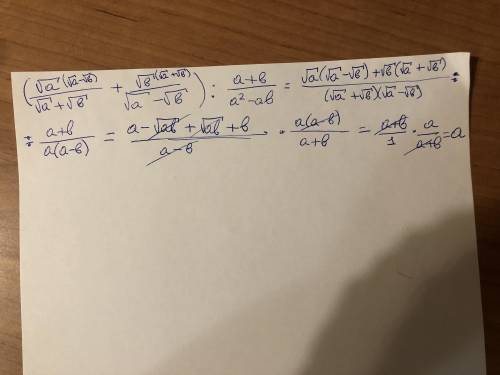 (√a^(√a-√b) / (√a + √b) + √b^(√a+√b) / (√a - √b)) : (a+b) / (a² - ab) = (√a(√a - √b) + √b(√a + √b)) / ((√a + √b)(√a - √b)) :
: (a+b) / (a(a-b)) = (a - √ab + √ab + b) / (a-b) · · (a(a-b)) / (a+b) = (a+b) / 1 · a / (a+b) = a